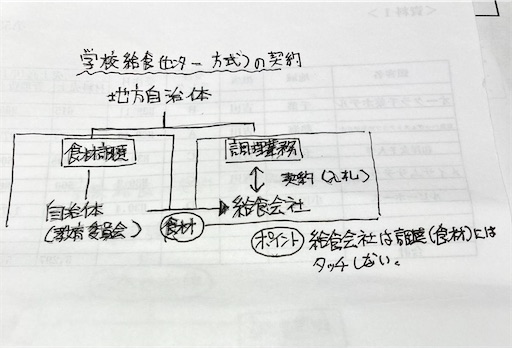 学校給食(センター方式)の契約
地方自治体
食材調達
調理業務
契約(入札)
自治体
(教育委員会)
食材
給食会社
ポイント 給食会社は調達(食材)には
タッチしない。